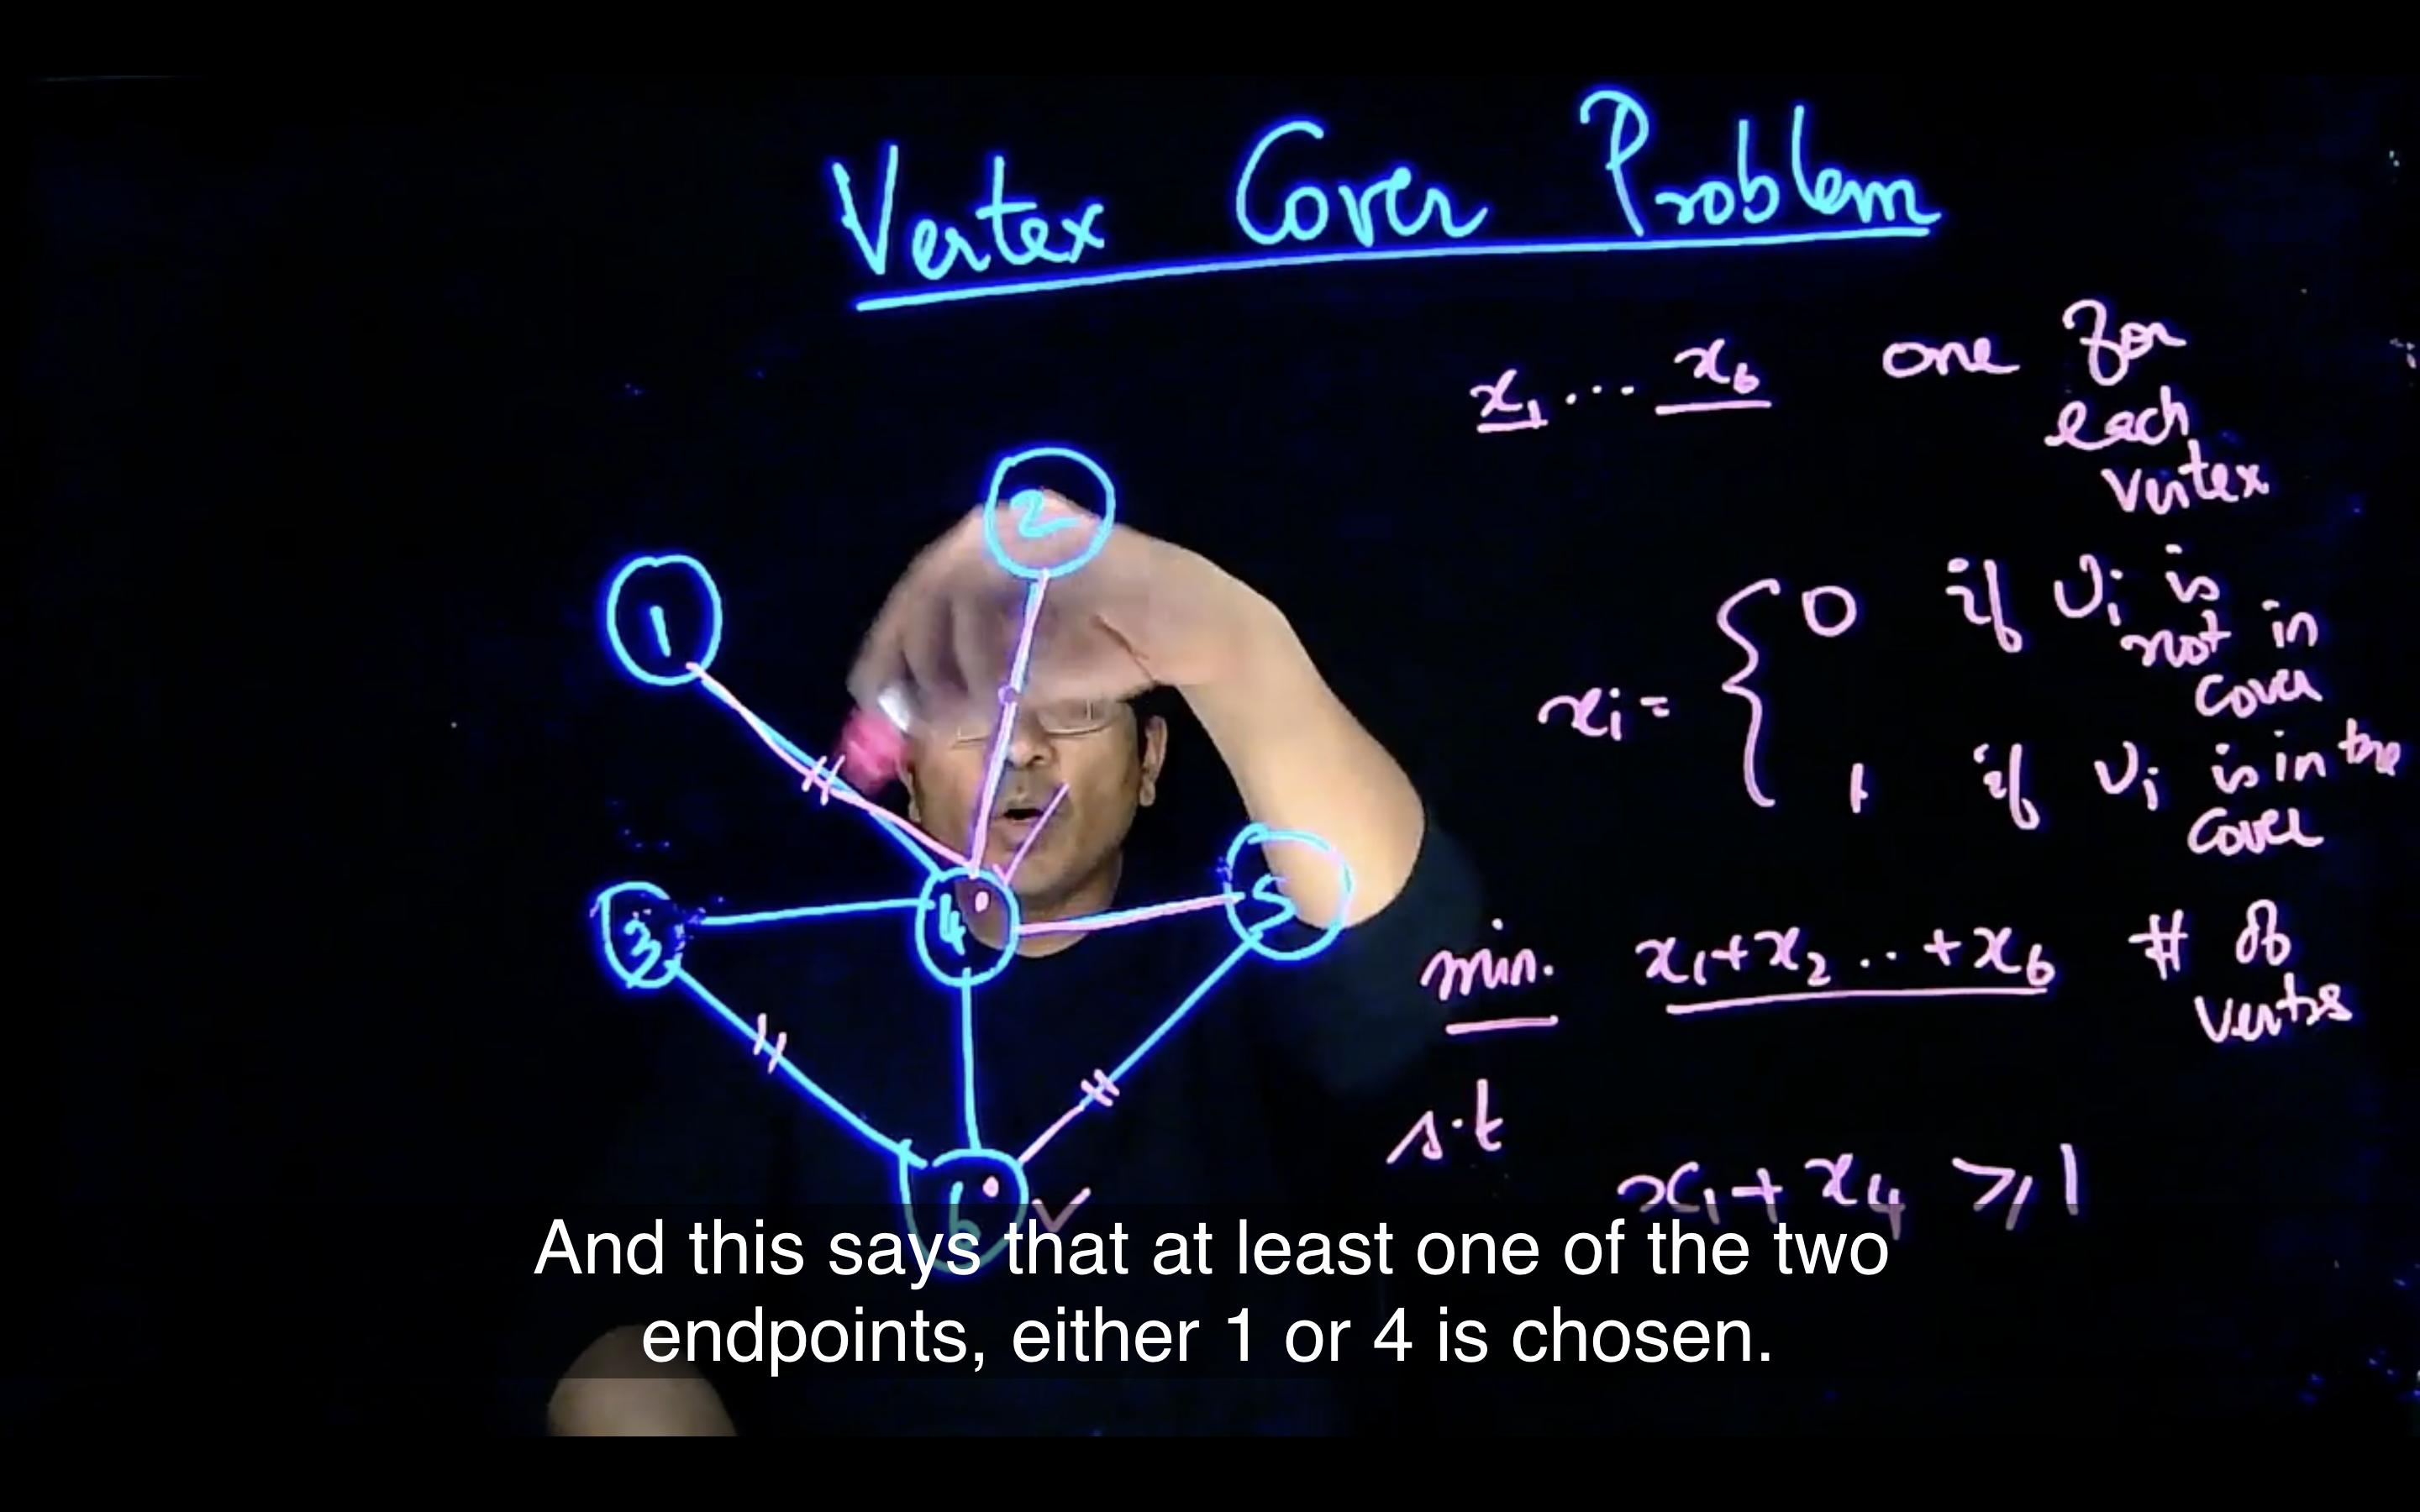 Vertex Cover Problem
x₁ ... x₆ one for
each
vertex
2
1
xᵢ = { 0 if vᵢ is
not in
cover
1 if vᵢ is in the
cover
3
4
5
min. x₁+x₂ .. +x₆ # of
s.t
x₁ + x₄ ≥ 1
6
And this says that at least one of the two
endpoints, either 1 or 4 is chosen.